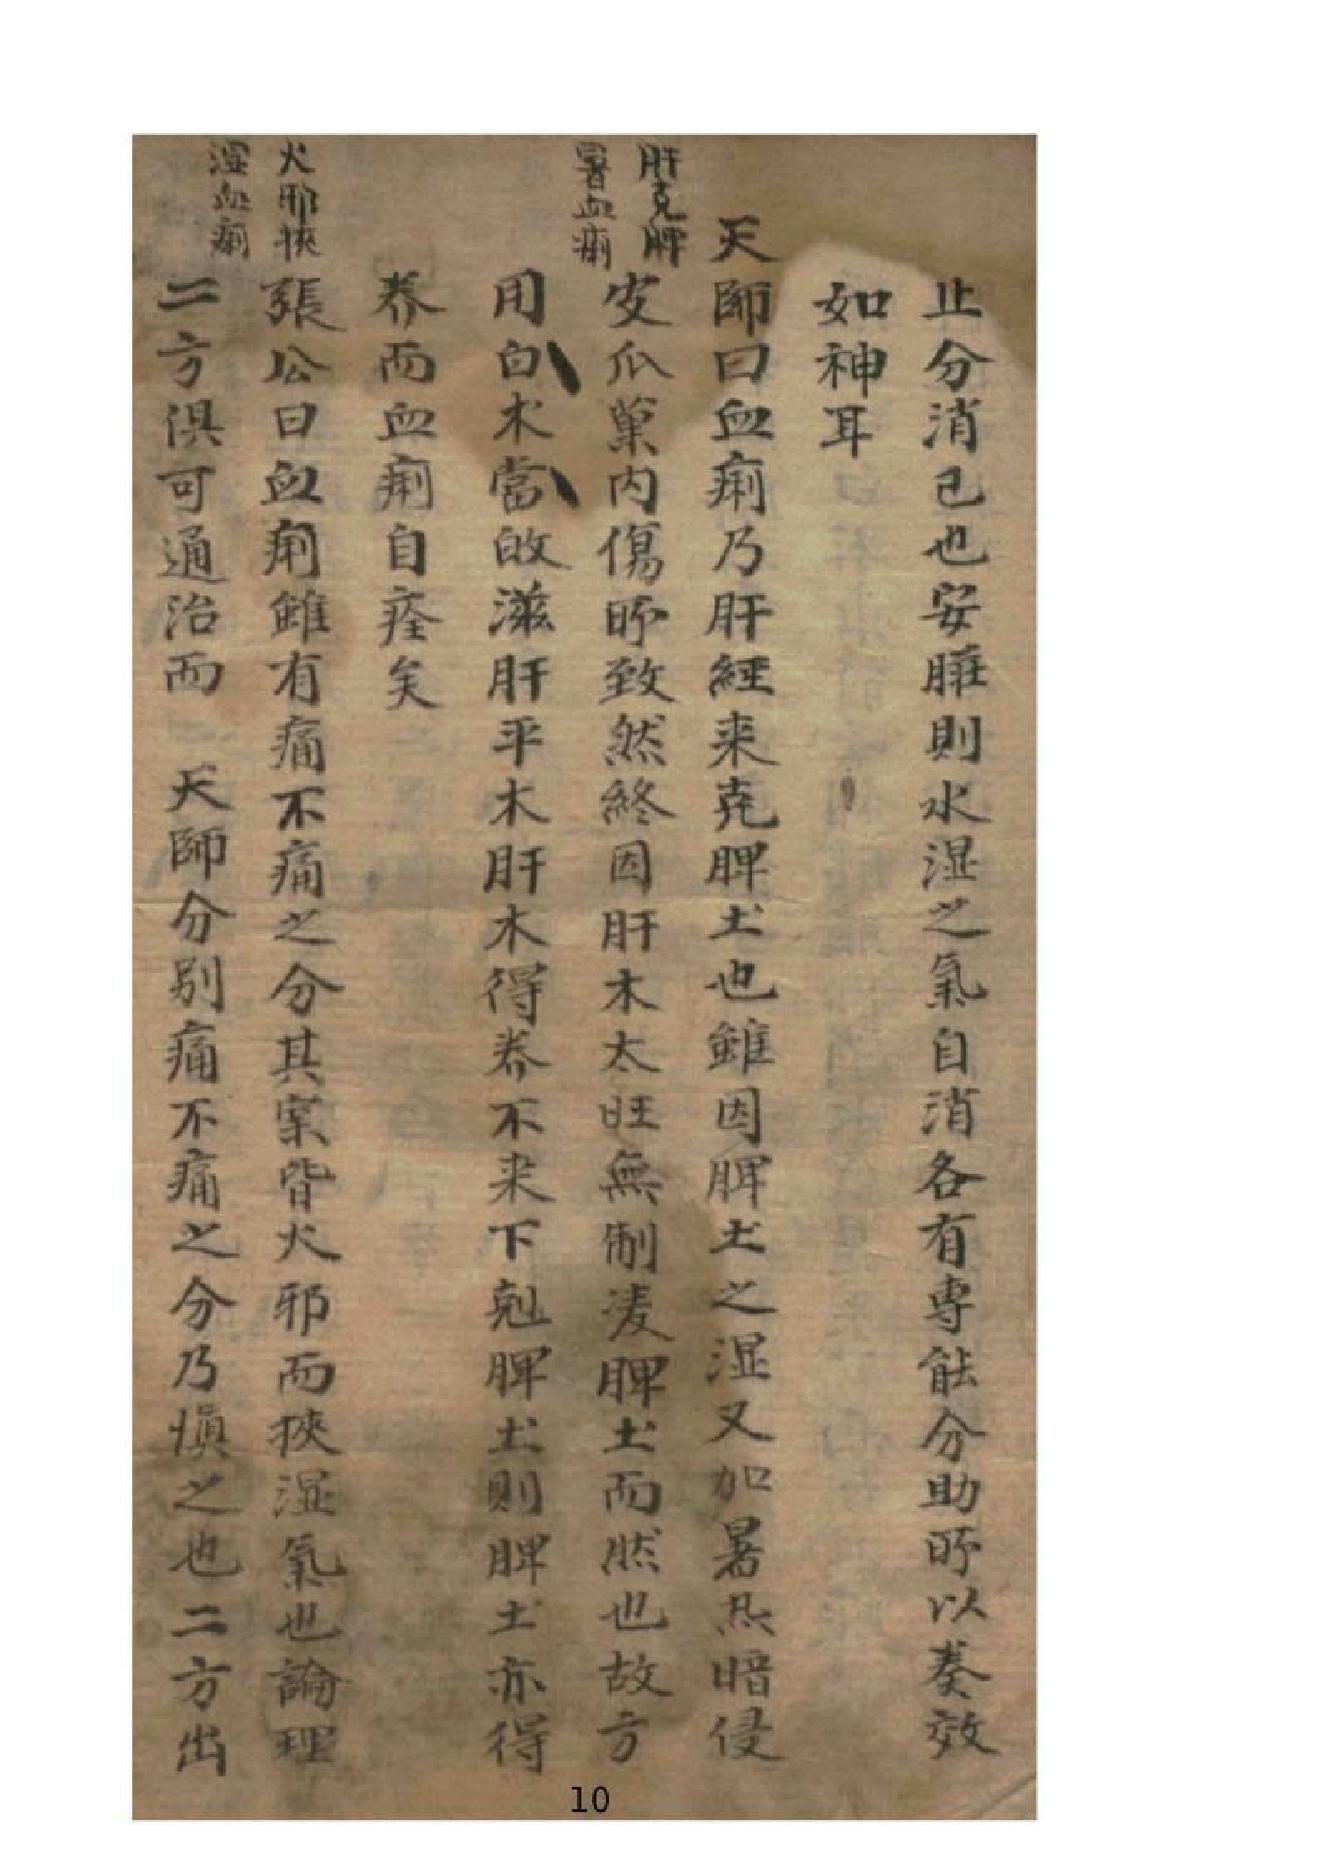 止分消已也安脾則水湿之氣自消各有專能分助所以奏效
如神耳
天師曰血痢乃肝經来克脾土也雖因脾土之湿又加暑炁暗侵
肝克脾
暑血痢
瓜菓内傷所致然終因肝木太旺無制凌脾土而然也故方
用白术當歸滋肝平木肝木得养不来下剋脾土則脾土亦得
养而血痢自痊矣
火邪挾
湿血痢
張公曰血痢雖有痛不痛之分其寔皆火邪而挾湿氣也論理
二方俱可通治而 天師分别痛不痛之分乃慎之也二方出
10